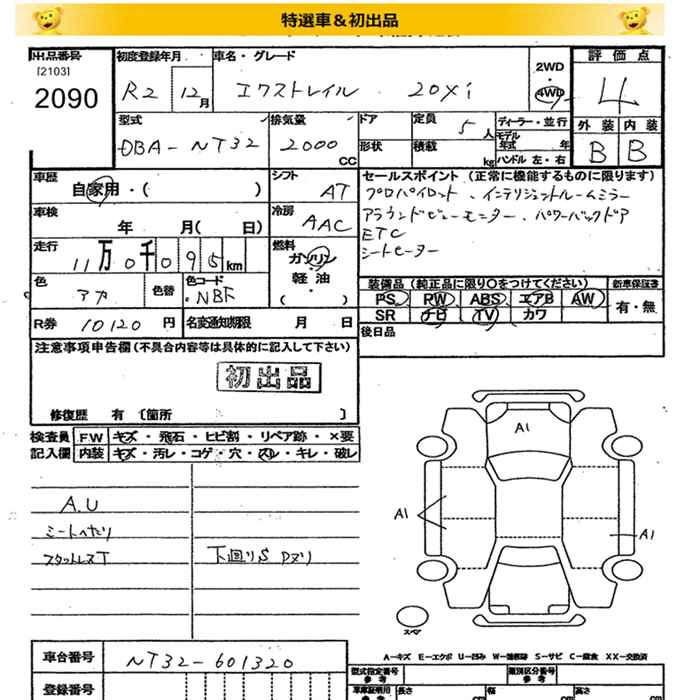 特選車＆初出品
出品番号 初度登録年月 車名・グレード 2WD・4WD 評価点
[2103]
2090 R2 12月 エクストレイル 20Xi 4
型式 排気量 ドア 定員 ディーラー・並行 外装 内装
DBA-NT32 2000CC 5人 モデル年式 年 B B
形状 積載 kg ハンドル 左・右
車歴 シフト セールスポイント (正常に機能するものに限ります)
自家用・( ) AT プロパイロット、インテリジェントルームミラー
車検 冷房 アラウンドビューモニター、パワーバックドア
年 月( 日) AAC ETC
走行 燃料 シートヒーター
11万0千095km ガソリン・軽油・( )
色 色替 色コード 装備品 (純正品に限り○をつけてください) 新車保証書
アカ NBF PS PW ABS エアB AW 有・無
SR ナビ TV カワ
R券 10120円 名変通知期限 月 日 後日品
注意事項申告欄(不具合内容等は具体的に記入して下さい)
初出品
修復歴 有 [箇所 ]
検査員 FW キズ・飛石・ヒビ割・リペア跡・×要
記入欄 内装 キズ・汚レ・コゲ・穴・スレ・キレ・破レ
A1
A.U
シートへたり
スタットレスT 下廻りS Pヌリ
A1 A1
スペア
A-キズ E-エクボ U-凹み W-補修跡 S-サビ C-腐食 XX-交換済
車台番号 NT32-601320
登録番号
型式指定番号 参考 類別区分番号 参考
車庫証明用 長さ 幅 高さ